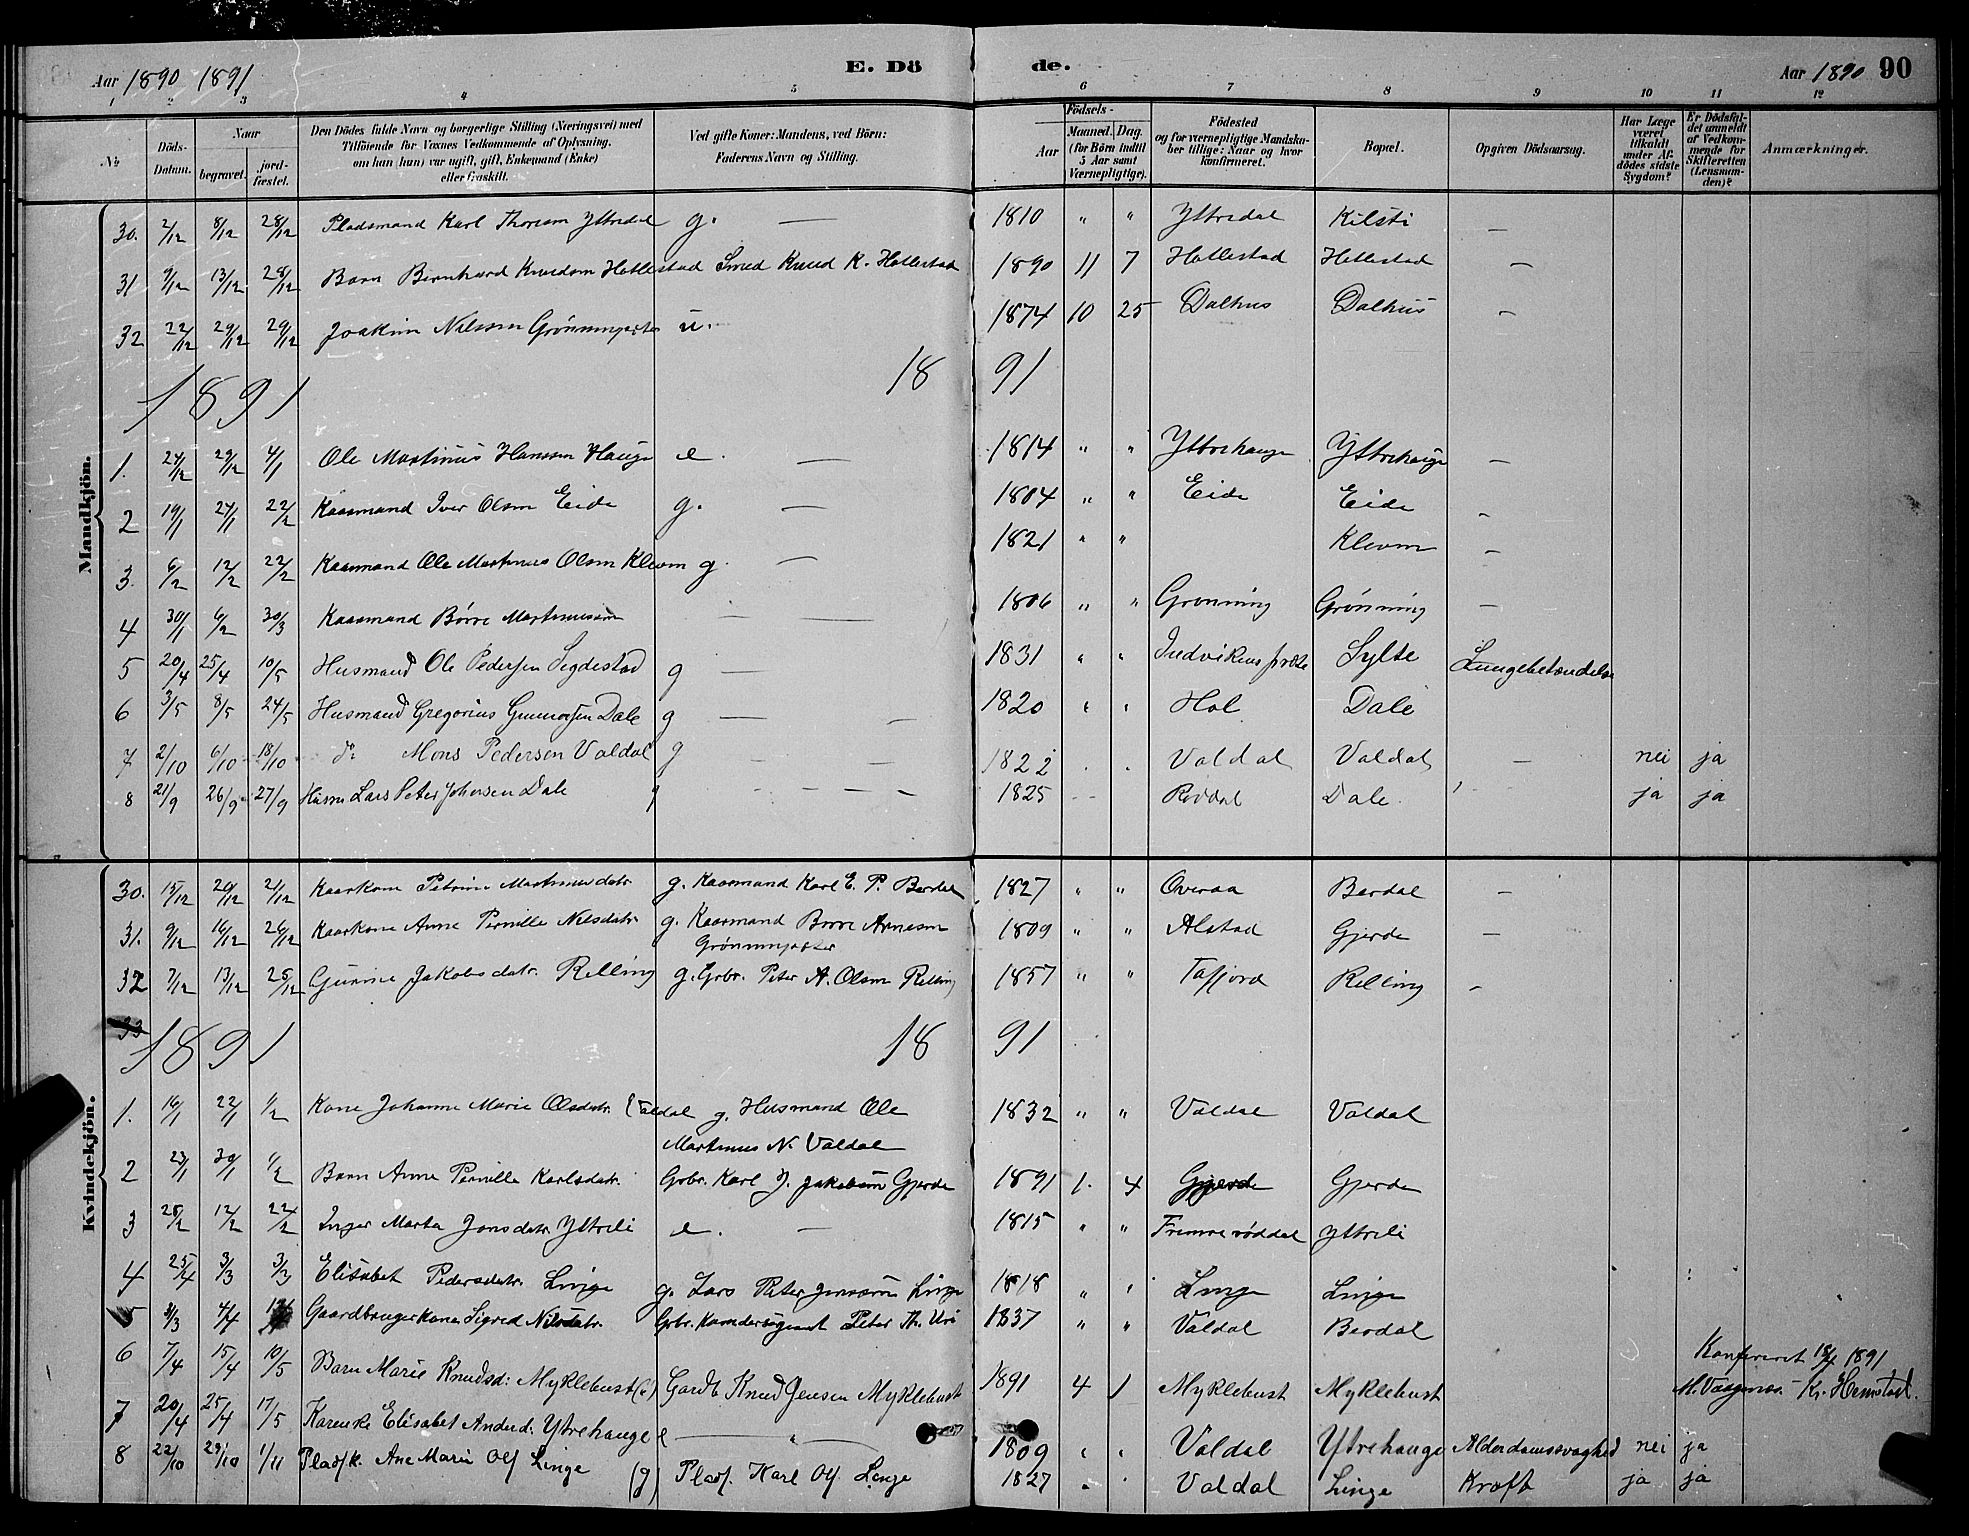 Aar 1890 1891 E. Dö de. Aar 1890 90
1 2 3 4 5 6 7 8 9 10 11 12
No. Döds-Datum. Naar begravet. jordfæstet. Den Dödes fulde Navn og borgerlige Stilling (Næringsvei) med Tilföiende for Voxnes Vedkommende af Oplysning, om han (hun) var ugift, gift, Enkemand (Enke) eller fraskilt. Ved gifte Koner: Mandens, ved Börn: Faderens Navn og Stilling. Födsels- Aar Maaned. Dag. (for Börn indtil 5 Aar samt Værnepligtige). Födested og for værnepligtige Mandskaber tillige: Naar og hvor konfirmeret. Bopæl. Opgiven Dödsaarsag. Har Læge været tilkaldt under Afdödes sidste Sygdom? Er Dödsfaldet anmeldt af Vedkommende for Skifteretten (Lensmanden)? Anmærkninger.
Mandkjön.
30. 2/12 8/12 28/12 Pladsmand Karl Thorsen Yttredal g. — 1810 " " Yttredal Kilsti —
31 9/12 13/12 28/12 Barn Bernhard Knudsen Hollestad Smed Knud K. Hollestad 1890 11 7 Hollestad Hollestad —
32 22/12 29/12 29/12 Joakim Nilssen u. 1874 10 25 Dalhus Dalhus —
1891 1891
1. 24/12 29/12 4/1 Ole Martinus Hanssen Hauge e. — 1814 " " Yttrehauge Yttrehauge —
2 19/1 27/1 22/2 Kaarmand Iver Olsen Eide g. — 1804 " " Eide Eide —
3. 6/2 12/2 22/2 Kaarmand Ole Martinus Olsen Kleven g. — 1821 " " Kleven —
4 30/1 6/2 30/3 Kaarmand Börre Martinussen — — 1806 " " Grönning Grönning —
5 20/4 25/4 10/5 Husmand Ole Pedersen Segdestad g — 1831 " " Indvikens præst Sylte Lungebetændelse
6 3/5 8/5 24/5 Husmand Gregorius Gunnarsen Dale g — — 1820 " " Hol Dale
7 2/10 6/10 18/10 do Mons Pedersen Valdal g — — 1822 " " Valdal Valdal — nei ja
8 21/9 26/9 27/9 Husm Lars Peter Johansen Dale g — — — — 1825 - - Röddal Dale. — ja ja
Kvindekjön.
30. 15/12 20/12 21/12 Kaarkone Petrine Martinusdatr. g. Kaarmand Karl E. P. Berdal 1827 " " Overaa Berdal —
31. 9/12 16/12 26/12 Kaarkone Anne Pernille Nilsdatr. g. Kaarmand Börre Arnesen 1809 " " Alstad Gjerde —
32 7/12 13/12 25/12 Gurine Jakobsdatr. Relling g. Grbr. Peter A. Olsen Relling 1857 " " Tafjord Relling —
33
1891 1891
1. 16/1 22/1 1/2 Kone Johanne Marie Olsdatr. Valdal g. Husmand Ole 1832 " " Valdal Valdal
Martinus N. Valdal
2 23/1 30/1 1/2 Barn Anne Pernille Karlsdatr. Grbr. Karl J. Jakobsen Gjerde 1891 1. 4 Gjerde Gjerde
3 12/2 22/2 Inger Marta Jonsdatr. Yttreli e. — 1815 " " Fremre röddal Yttreli
4 3/3 3/3 Elisabet Pedersdatr. Linge g. Lars Peter Jonssen Linge 1818 " " Linge Linge
5 3/3 4/4 Gaardbrugerkone Sigrid Nilsdatr. Grbr. Peter Th. Uri 1837 " " Valdal Berdal
6 7/4 15/4 10/5 Barn Marie Knudsd: Myklebust Gardb. Knud Jensen Myklebust 1891 4 1 Myklebust Myklebust
Konfereret 18/4 1891
7 20/4 25/4 17/5 Karenke Elisabet Andersd: Ytrehauge e — " — 1809 " " Valdal Ytrehauge Alderdomssvaghed nei ja
8 22/10 29/10 1/11 Pladsk. Ane Marie Ols Linge (g) Plads. Karl Ols Linge 1827 " " Valdal Linge Kræft ja ja